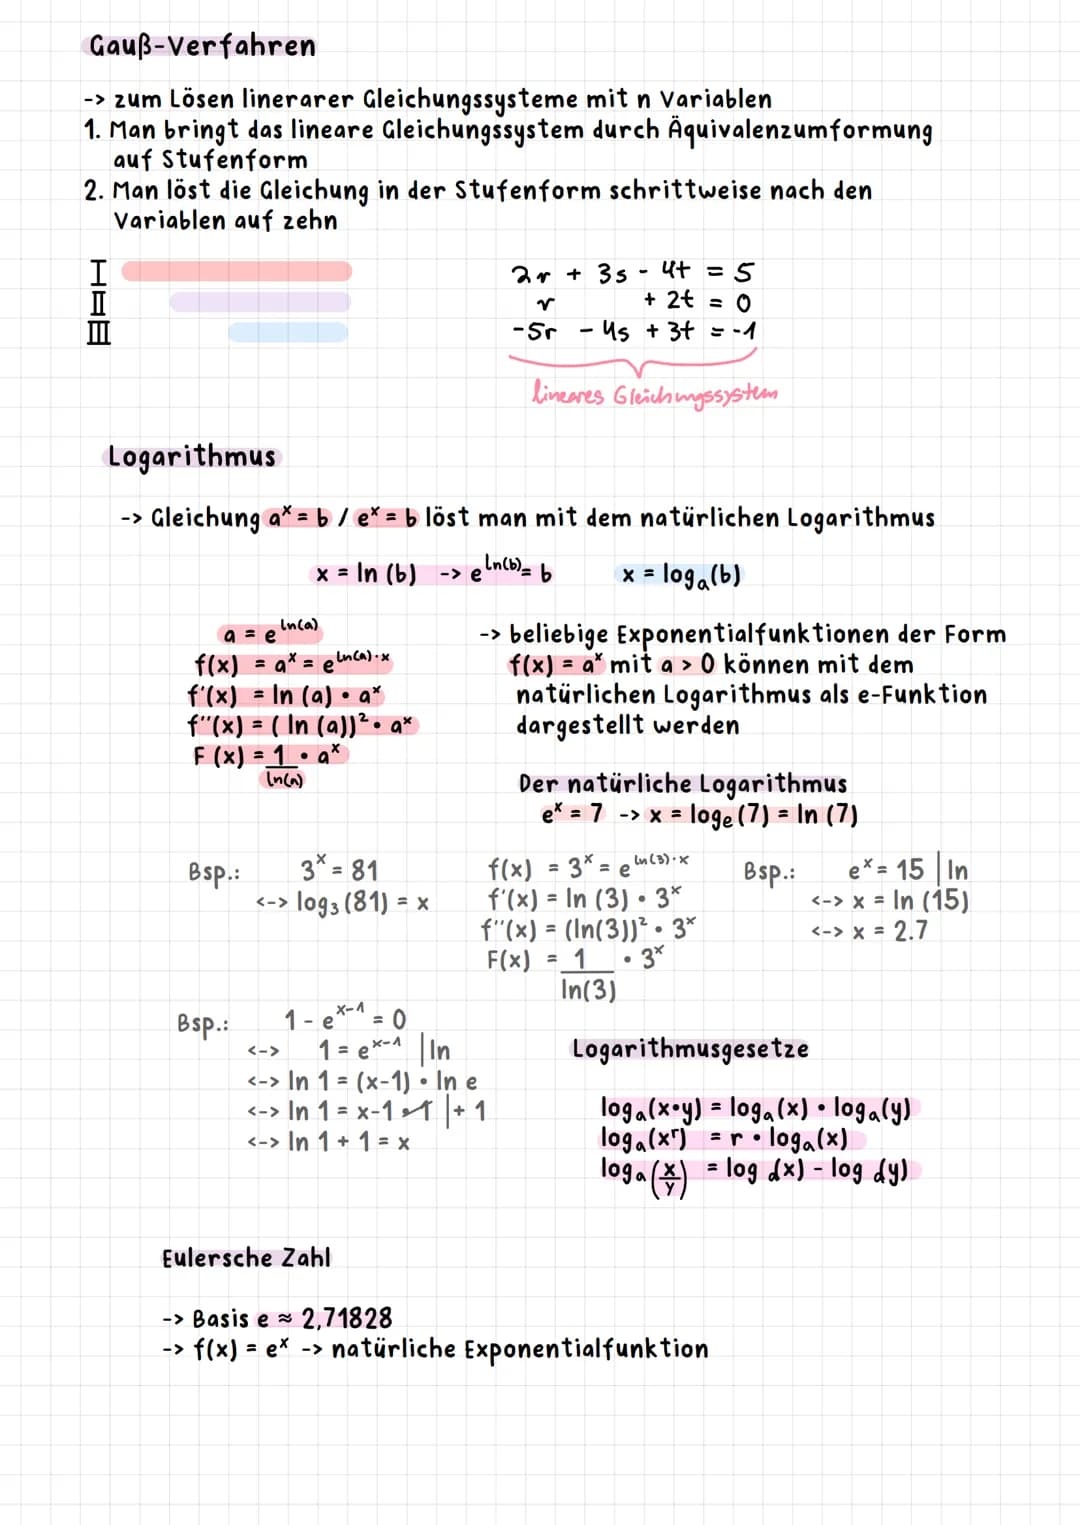 Gauß-Verfahren
-> zum Lösen linerarer Gleichungssysteme mit n Variablen
1. Man bringt das lineare Gleichungssystem durch Äquivalenzumformung
auf Stufenform
2. Man löst die Gleichung in der Stufenform schrittweise nach den
Variablen auf zehn
I
II
III
2r + 3s - 4t = 5
r + 2t = 0
-5r - 4s + 3t = -1
lineares Gleichungssystem
Logarithmus
-> Gleichung aˣ = b / eˣ = b löst man mit dem natürlichen Logarithmus
x = ln (b) -> e^ln(b) = b x = logₐ(b)
a = e^ln(a)
f(x) = aˣ = e^ln(a)·x
f'(x) = ln (a) • aˣ
f''(x) = ( ln (a))² • aˣ
F (x) = 1 • aˣ
ln(a)
-> beliebige Exponentialfunktionen der Form
f(x) = aˣ mit a > 0 können mit dem
natürlichen Logarithmus als e-Funktion
dargestellt werden
Der natürliche Logarithmus
eˣ = 7 -> x = logₑ(7) = ln (7)
Bsp.: 3ˣ = 81
<-> log₃(81) = x
f(x) = 3ˣ = e^ln(3)·x
f'(x) = ln (3) • 3ˣ
f''(x) = (ln(3))² • 3ˣ
F(x) = 1 • 3ˣ
ln(3)
Bsp.: eˣ = 15 | ln
<-> x = ln (15)
<-> x = 2.7
Bsp.: 1 - e^x-1 = 0
<-> 1 = e^x-1 | ln
<-> ln 1 = (x-1) • ln e
<-> ln 1 = x-1 • 1 | + 1
<-> ln 1 + 1 = x
Logarithmusgesetze
logₐ(x•y) = logₐ(x) • logₐ(y)
logₐ(xʳ) = r • logₐ(x)
logₐ(x/y) = logₐ(x) - logₐ(y)
Eulersche Zahl
-> Basis e ≈ 2,71828
-> f(x) = eˣ -> natürliche Exponentialfunktion